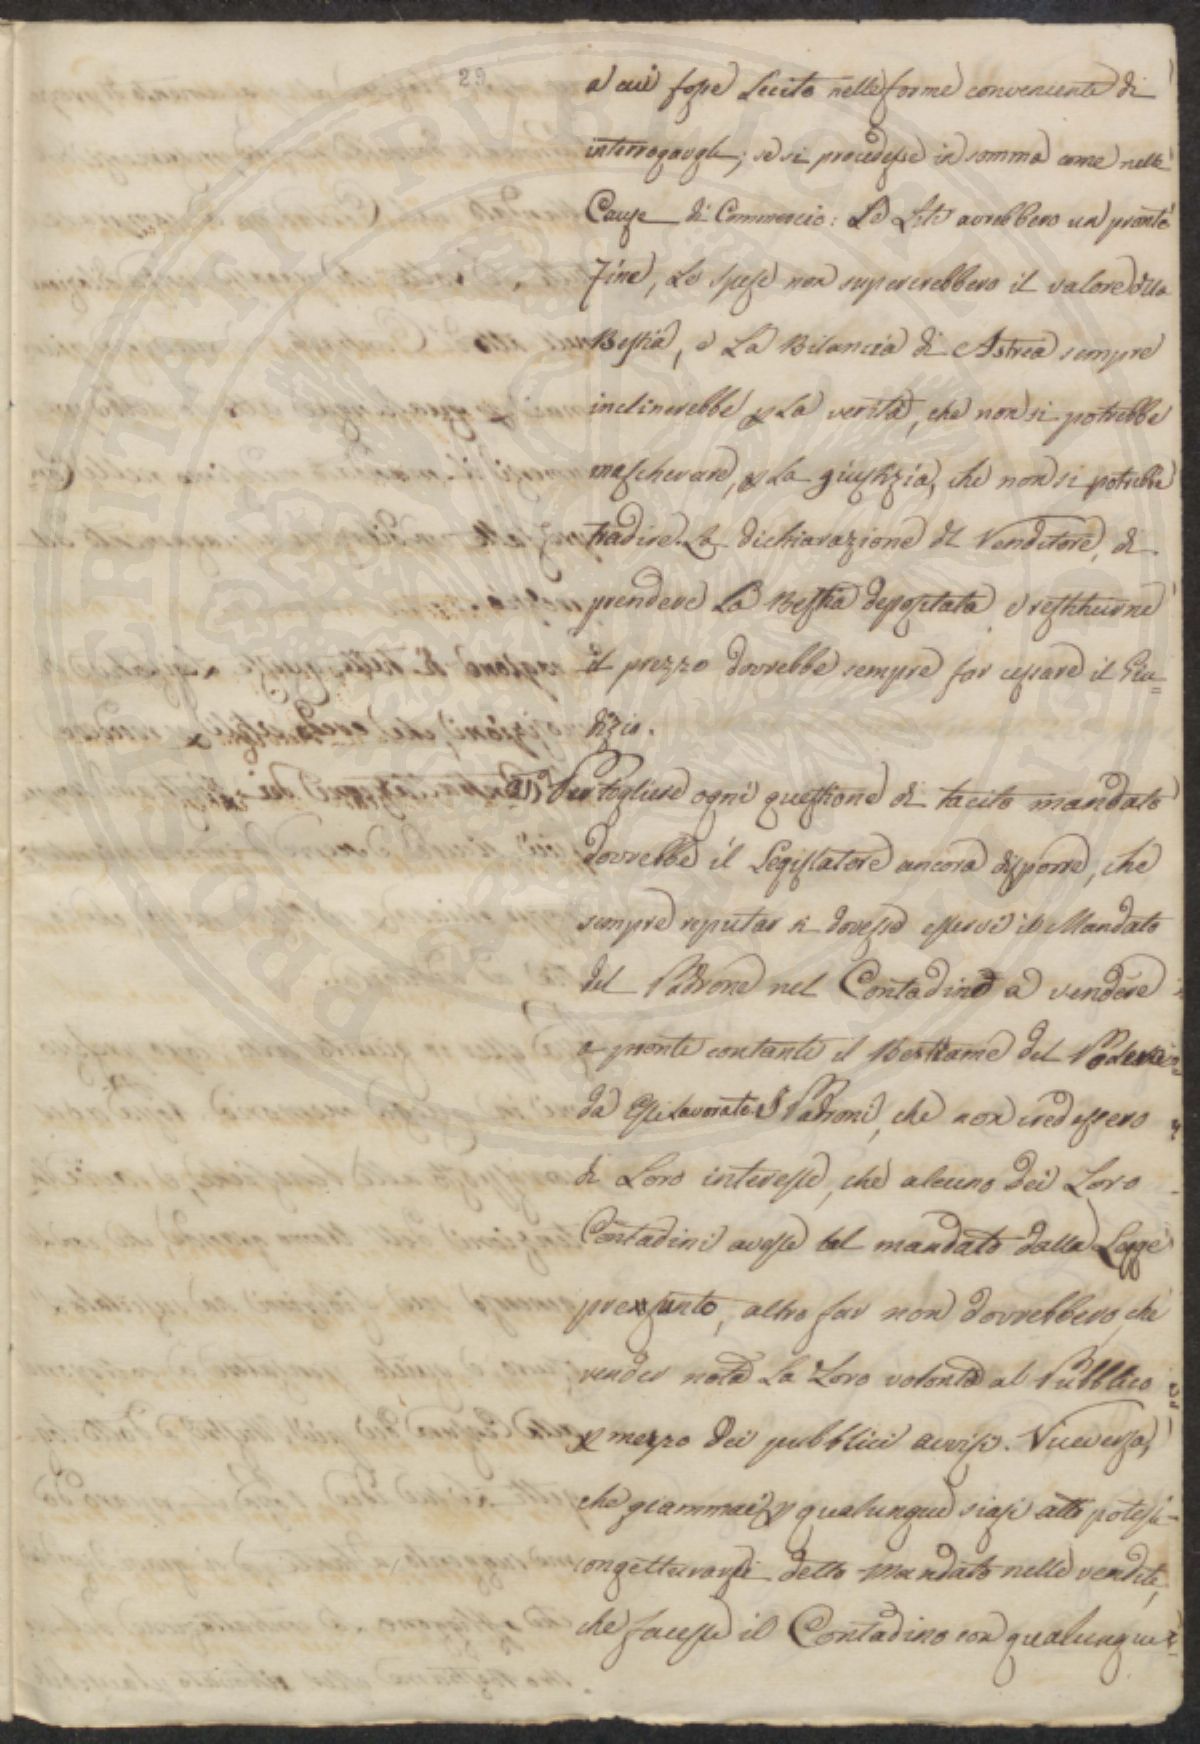 29
a cui fosse Lecito nelle forme convenienti di
interrogargli; se si procedesse in somma come nelle
Cause di Commercio: Le Liti avrebbero un pronto
Fine, Le Spese non supererebbero il valore della
Bestia, e La Bilancia di Astrea sempre
inclinerebbe p La verità, che non si potrebbe
mascherare, p La giustizia, che non si potrebbe
tradire. La dichiarazione del Venditore, di
prendere La Bestia depositata e restituirne
il prezzo dovrebbe sempre far cessare il Giu=
dizio.
Per togliere ogni questione di tacito mandato
dovrebbe il Legislatore ancora disporre, che
sempre reputar si dovesse esservi il Mandato
del Padrone nel Contadino a vendere
a pronti contanti il Bestiame del Podere
da Essi lavorato. I Padroni, che non credessero
di Loro interesse, che alcuno dei Loro
Contadini avesse tal mandato dalla Legge
presunto, altro far non dovrebbero, che
render nota La Loro volontà al Pubblico
p mezzo dei pubblici avvisi. Viceversa,
che giammai p qualunque siasi atto potesse
congetturarsi detto Mandato nelle vendite,
che facesse il Contadino con qualunque